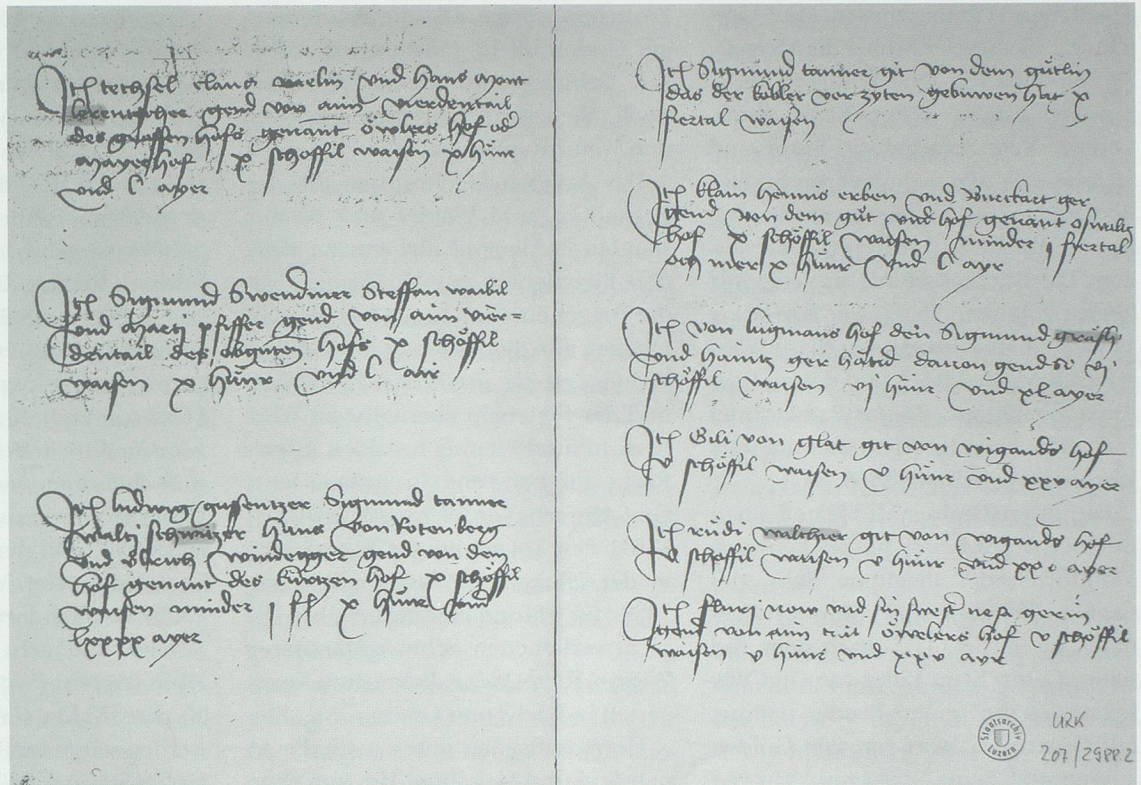 Itch techsel clans welin und hans mont
brentscher gend von aim vierdentail
des grossen hofs genant öwlers hof od
mayerhof x schöffil waisen x hünr
und C ayer
Itch Sigmund Swendiner Steffan waibil
und Marti pfiffer gend von aim vier=
dentail des obgnten hofs x schöffil
waisen x hünr und C air
Itch ludwig Sigmund tanner
walti schwitzer hans von Rotenberg
und Ulrich windegger gend von dem
hof genant des kurtzen hof x schöffil
waisen minder j x hünr und
lxxxx ayer
Itch Sigmund tanner git von dem gütlin
das der kobler vor zyten gebuwen hat x
fiertal waisen
Itch klain hennis erben und Burckart ger
gend von dem güt und hof genant oswaltz
hof x schöffil waisen minder j fiertal
och mer x hünr und C ayr
Itch von lugmans hof den Sigmund
und haintz ger hatid davon gend si vj
schöffil waisen vj hünr und xl ayer
Itch Gili von glat git von wigands hof
v schöffil waisen v hünr und xxv ayer
Itch rüdi walcher git von wigands hof
v schöffil waisen v hünr und xxv ayer
Itch und sin swest
gend von aim tail öwelers hof v schöffil
waisen v hünr und xxv ayr
Staatsarchiv Luzern
URK
207/2988.2